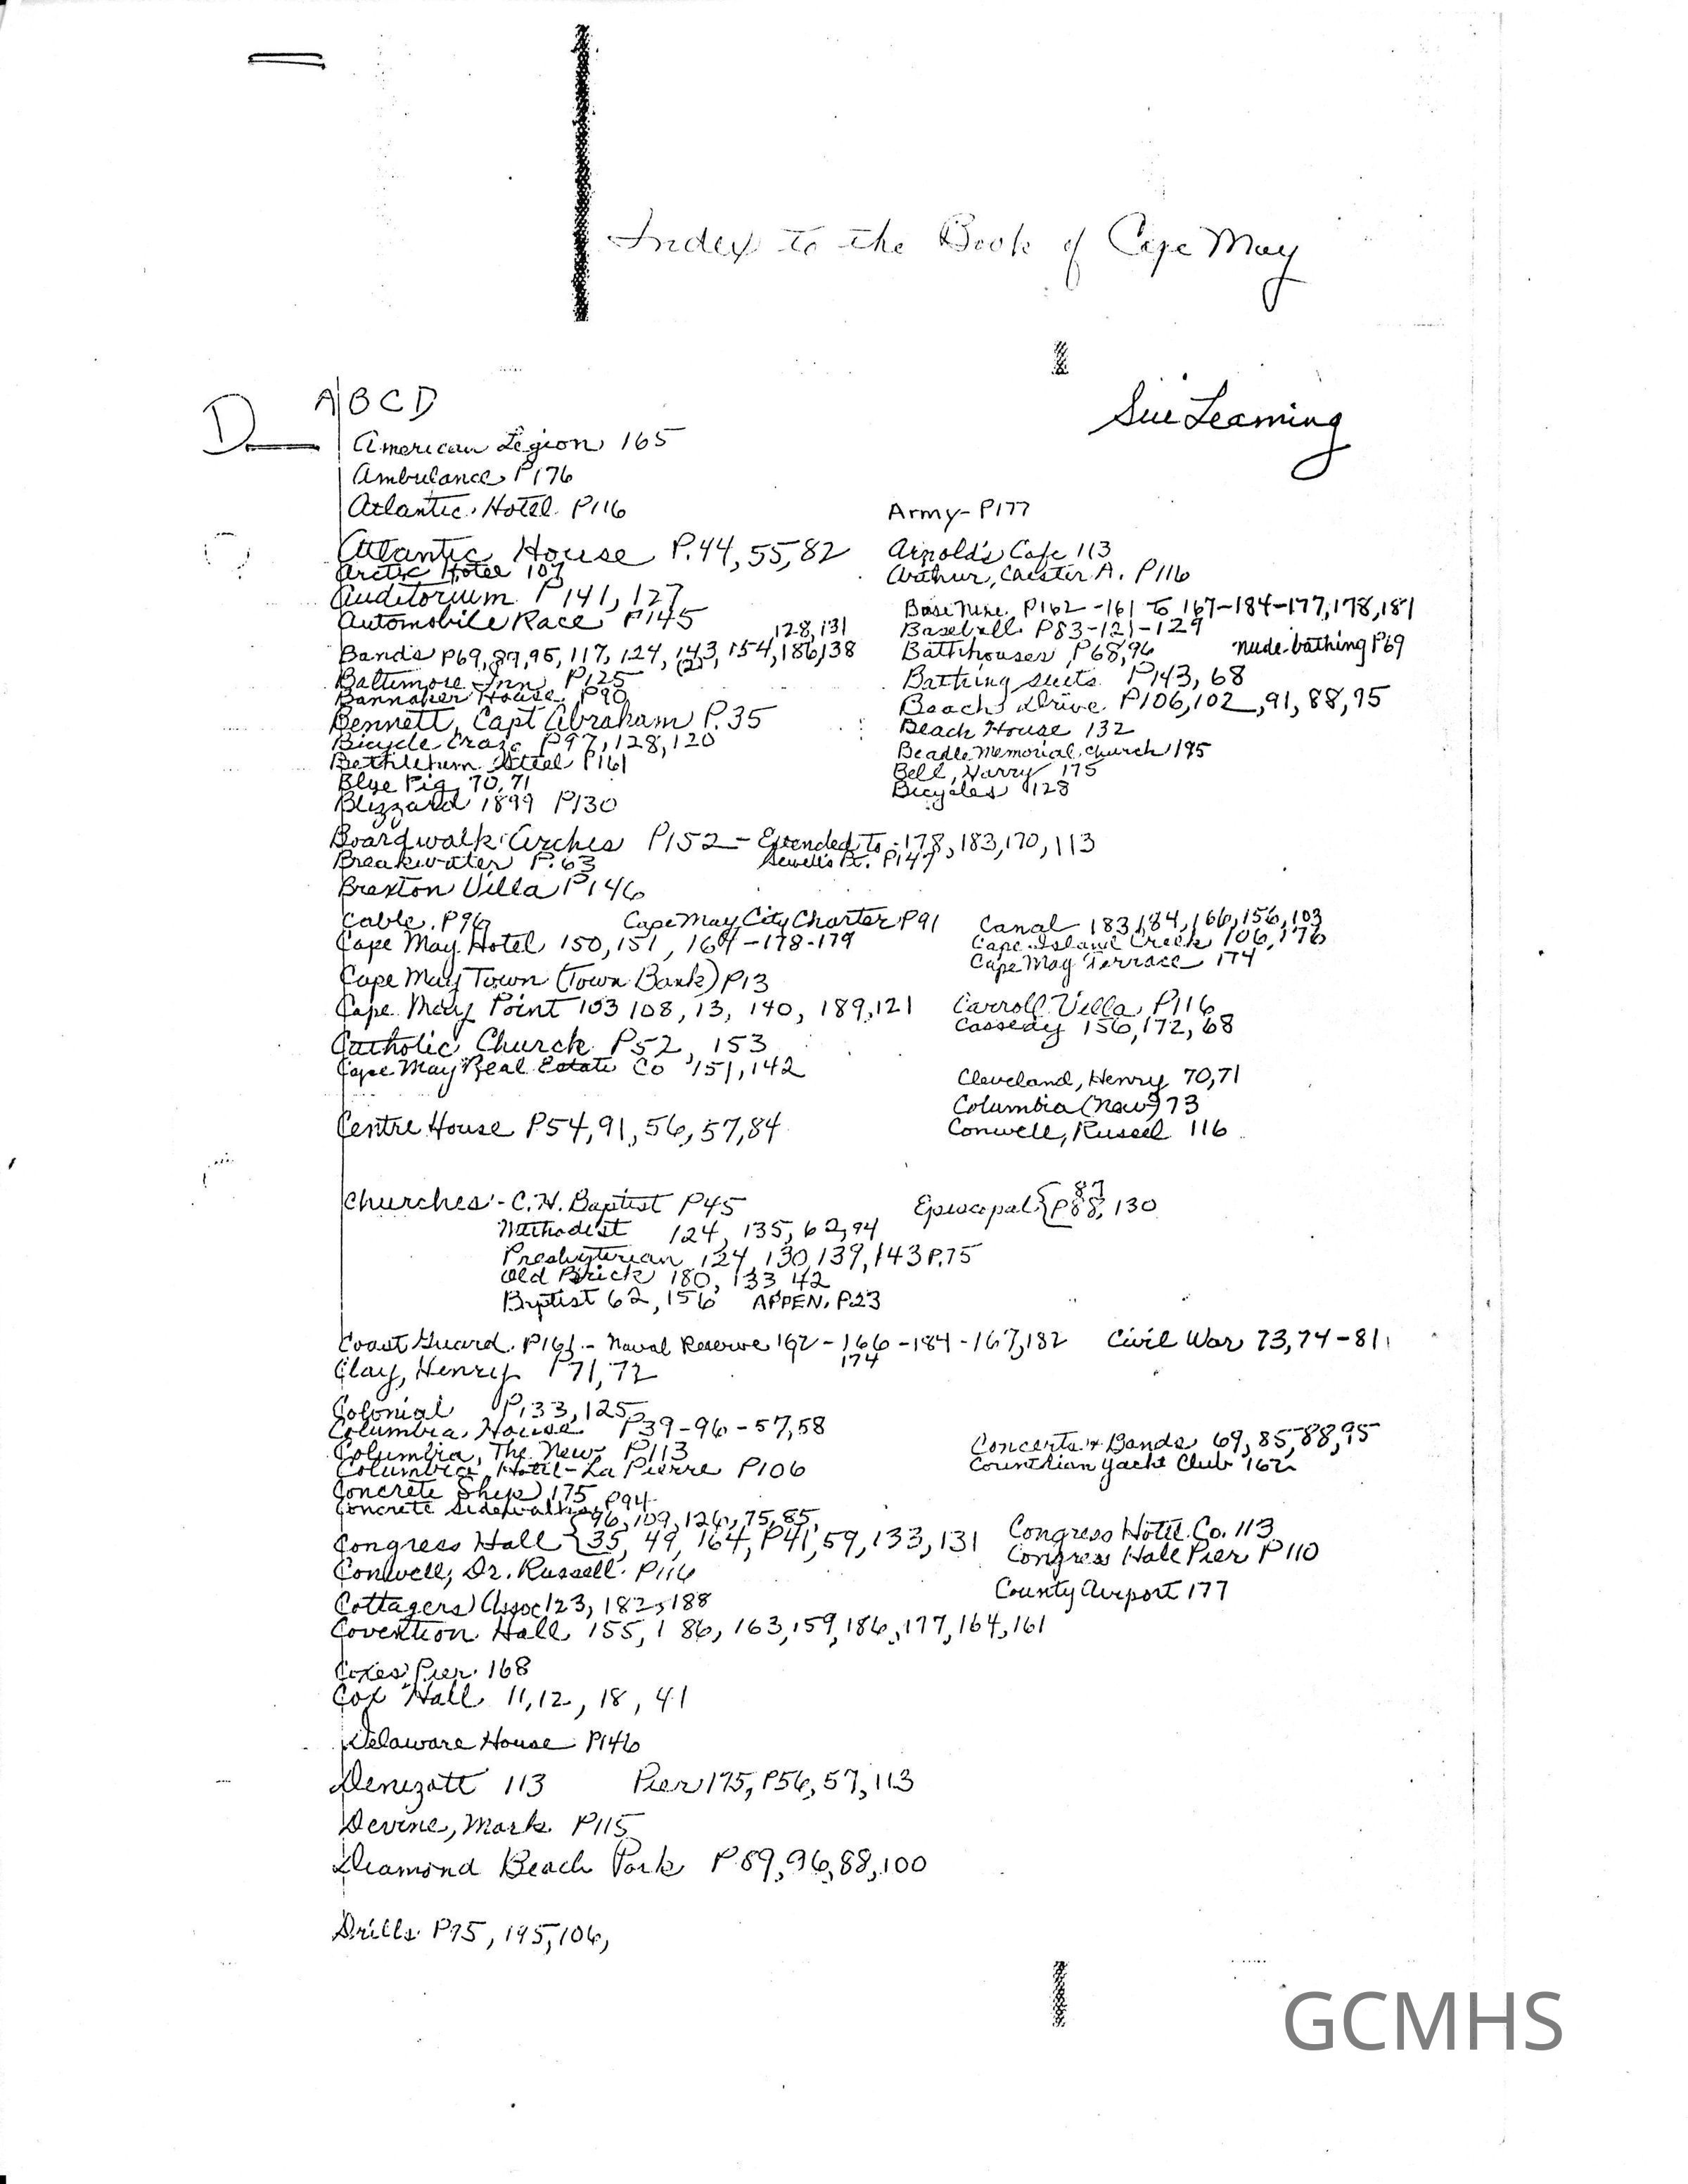 Index to the Book of Cape May
Sue Leaming
A B C D
D
American Legion 165
Ambulance P176
Atlantic Hotel P116
Army - P177
Atlantic House P.44, 55, 82
Arnold's Cafe 113
Arctic Hotel 107
Arthur, Chester A. P116
Auditorium P141, 127
Automobile Race P145
Base Nine P162 - 161 to 167 - 184 - 177, 178, 181
128, 131
Baseball P83 - 121 - 129
Bands P69, 89, 95, 117, 124, 143, 154, 186, 138
(2)
Bathhouses P68, 96
nude bathing P69
Baltimore Inn P125
Bathing suits P143, 68
Bannaker House P90
Beach Drive P106, 102, 91, 88, 95
Bennett, Capt Abraham P.35
Beach House 132
Bicycle Craze P97, 128, 120
Beadle Memorial Church 195
Bethlehem Steel P161
Bell, Harry 175
Blue Pig 70, 71
Bicycles 128
Blizzard 1899 P130
Boardwalk Arches P152 - Extended to - 178, 183, 170, 113
Sewell's Pt. P147
Breakwater P.63
Braxton Villa P146
Cable P96
Cape May City Charter P91
Canal 183, 184, 166, 156, 103
Cape May Hotel 150, 151, 164 - 178 - 179
Cape Island Creek 106, 176
Cape May Terrace 174
Cape May Town (Town Bank) P13
Cape May Point 103 108, 13, 140, 189, 121
Carroll Villa P116
Cassedy 156, 172, 68
Catholic Church P52, 153
Cape May Real Estate Co 151, 142
Cleveland, Henry 70, 71
Columbia (New) 73
Centre House P54, 91, 56, 57, 84
Conwell, Russel 116
Churches - C.H. Baptist P45
Episcopal { P88, 130
87
Methodist 124, 135, 62, 94
Presbyterian 124, 130, 139, 143 P.75
Old Brick 180, 133, 42
Bptist 62, 156 APPEN. P23
Coast Guard P161 - Naval Reserve 162 - 166 - 184 - 167, 182
174
Civil War 73, 74 - 81
Clay, Henry P71, 72
Colonial P133, 125
Columbia House P39 - 96 - 57, 58
Concerts & Bands 69, 85, 88, 95
Columbia, The New P113
Corinthian Yacht Club 162
Columbia Hotel - La Pierre P106
Concrete Ship 175
Concrete Sidewalks P94
Congress Hall { 96, 109, 126, 75, 85,
35, 49, 164, P41, 59, 133, 131
Congress Hotel Co. 113
Congress Hall Pier P110
Conwell, Dr. Russell P116
County Airport 177
Cottagers Assoc 123, 182, 188
Covention Hall 155, 186, 163, 159, 186, 177, 164, 161
Coxes Pier 168
Cox Hall 11, 12, 18, 41
Delaware House P146
Denizott 113 Pier 175, P56, 57, 113
Devine, Mark P115
Diamond Beach Park P89, 96, 88, 100
Drills P95, 195, 106,
GCMHS